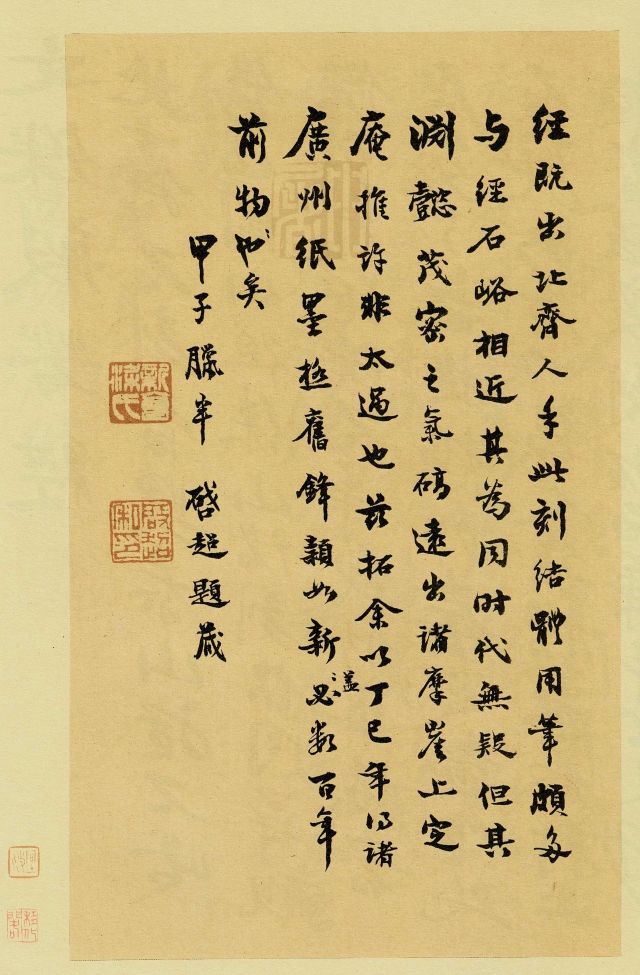 經既出北齊人手此刻結體用筆頗多
与經石峪相近其為同時代無疑但其
淵懿茂密之氣碻遠出諸摩崖上定
庵推許非太過也茲拓余以丁巳年得諸
廣州紙墨極舊鋒穎如新必蓋數百年
前物也矣
甲子臘半 啓超題藏
新會梁氏
啟超私印